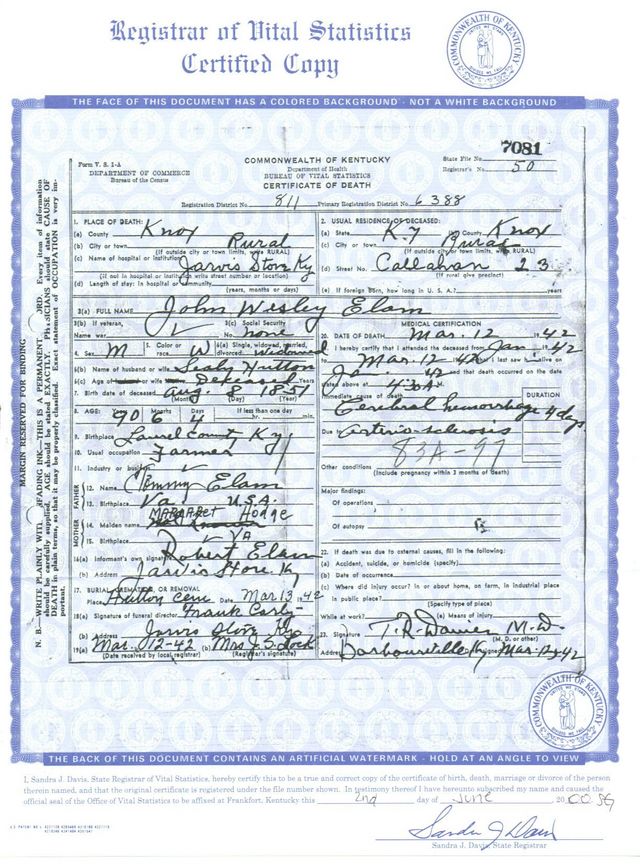 Registrar of Vital Statistics
Certified Copy
COMMONWEALTH OF KENTUCKY
THE FACE OF THIS DOCUMENT HAS A COLORED BACKGROUND · NOT A WHITE BACKGROUND
MARGIN RESERVED FOR BINDING
Form V. S. 1-A
DEPARTMENT OF COMMERCE
Bureau of the Census
COMMONWEALTH OF KENTUCKY
Department of Health
BUREAU OF VITAL STATISTICS
CERTIFICATE OF DEATH
State File No. 7081
Registrar's No. 50
Registration District No. 811 Primary Registration District No. 6388
1. PLACE OF DEATH:
(a) County Knox
(b) City or town Rural
(If outside city or town limits, write RURAL)
(c) Name of hospital or institution Jarvis Store Ky
(If not in hospital or institution write street number or location)
(d) Length of stay: In hospital or community
(years, months or days)
2. USUAL RESIDENCE OF DECEASED:
(a) State Ky (b) County Knox
(c) City or town Rural
(If outside city or town limits, write RURAL)
(d) Street No. Callahan 23
(If rural give precinct)
(e) If foreign born, how long in U. S. A.? years
3(a) FULL NAME John Wesley Elam
3(b) If veteran,
Name war
3(c) Social Security
No. none
4. Sex M 5. Color or race W 6(a) Single, widowed, married, divorced Widowed
6(b) Name of husband or wife Hutton
6(c) Age of husband or wife Deceased Years
7. Birth date of deceased Aug. 8 1851
(Month) (Day) (Year)
8. AGE: Years Months Days If less than one day
90 6 4 hr. min.
9. Birthplace Laurel County Ky
10. Usual occupation Farmer
11. Industry or business
FATHER
12. Name Elam
13. Birthplace Va. U.S.A.
MOTHER
14. Maiden name MARGARET Hodge
15. Birthplace VA
16(a) Informant's own signature Robert Elam
(b) Address Jarvis Store Ky
17. BURIAL, CREMATION, OR REMOVAL
Place Hutton Cem Date Mar 13 1942
18(a) Signature of funeral director Frank
(b) Address Jarvis Store Ky
19(a) Mar. 12-42 (b) Mrs J. S.
(Date received by local registrar) (Registrar's signature)
MEDICAL CERTIFICATION
20. DATE OF DEATH Mar. 12 1942
21. I hereby certify that I attended the deceased from Jan 1942
to Mar. 12 42 that I last saw h alive on
Ja 42 and that death occurred on the
date above at 4:30 A M
Immediate cause of death DURATION
Cerebral hemorrhage 4 days
Due to Arterio-sclerosis
83A-97
Other conditions
(Include pregnancy within 3 months of death)
Major findings:
Of operations
Of autopsy
22. If death was due to external causes, fill in the following:
(a) Accident, suicide, or homicide (specify)
(b) Date of occurrence
(c) Where did injury occur? In or about home, on farm, in industrial place
in public place?
(Specify type of place)
While at work? (e) Means of injury
23. Signature T. R. Davies M.D.
(M. D. or other)
Address Barbourville Ky Date signed Mar. 12-42
COMMONWEALTH OF KENTUCKY
THE BACK OF THIS DOCUMENT CONTAINS AN ARTIFICIAL WATERMARK · HOLD AT AN ANGLE TO VIEW
I, Sandra J. Davis, State Registrar of Vital Statistics, hereby certify this to be a true and correct copy of the certificate of birth, death, marriage or divorce of the person
therein named, and that the original certificate is registered under the file number shown. In testimony thereof I have hereunto subscribed my name and caused the
official seal of the Office of Vital Statistics to be affixed at Frankfort, Kentucky this 2nd day of June 20 00
Sandra J Davis
Sandra J. Davis, State Registrar